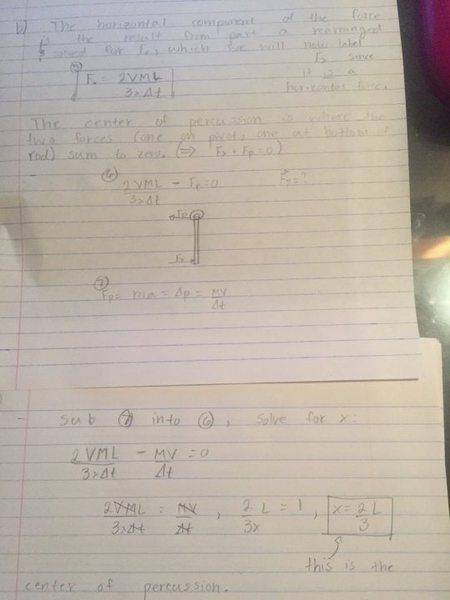 b) The horizontal component of the force
is the result from part a rearranged
& solved for Fx, which we will now label
Fx since
it is a
horizontal force.
⑤ Fx = 2VML / 3xΔt
The center of percussion is where the
two forces (one on pivot, one at bottom of
rod) sum to zero. (=> Fx + Fp = 0)
⑥ 2VML / 3xΔt - Fp = 0 Fp = ?
Fp
Fx
⑦ Fp = ma = Δp = MV / Δt
Sub ⑦ into ⑥, solve for x:
2VML / 3xΔt - MV / Δt = 0
2VML / 3xΔt = MV / Δt , 2L / 3x = 1 , x = 2L / 3
this is the
center of percussion.